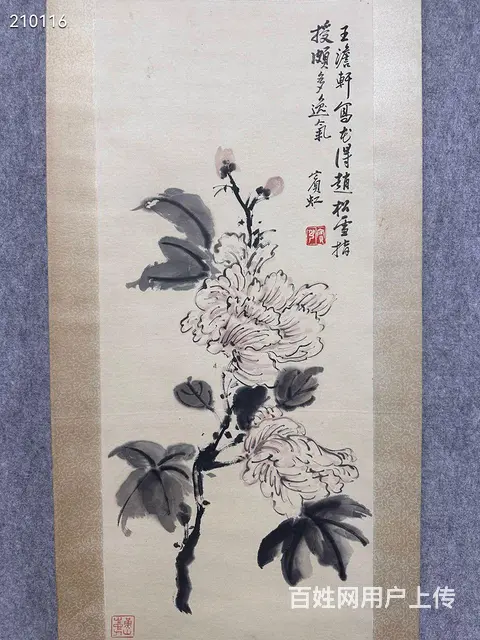 210116
王澹軒寫花得趙松雪指
授頗多逸氣
賓虹
百姓网用户上传